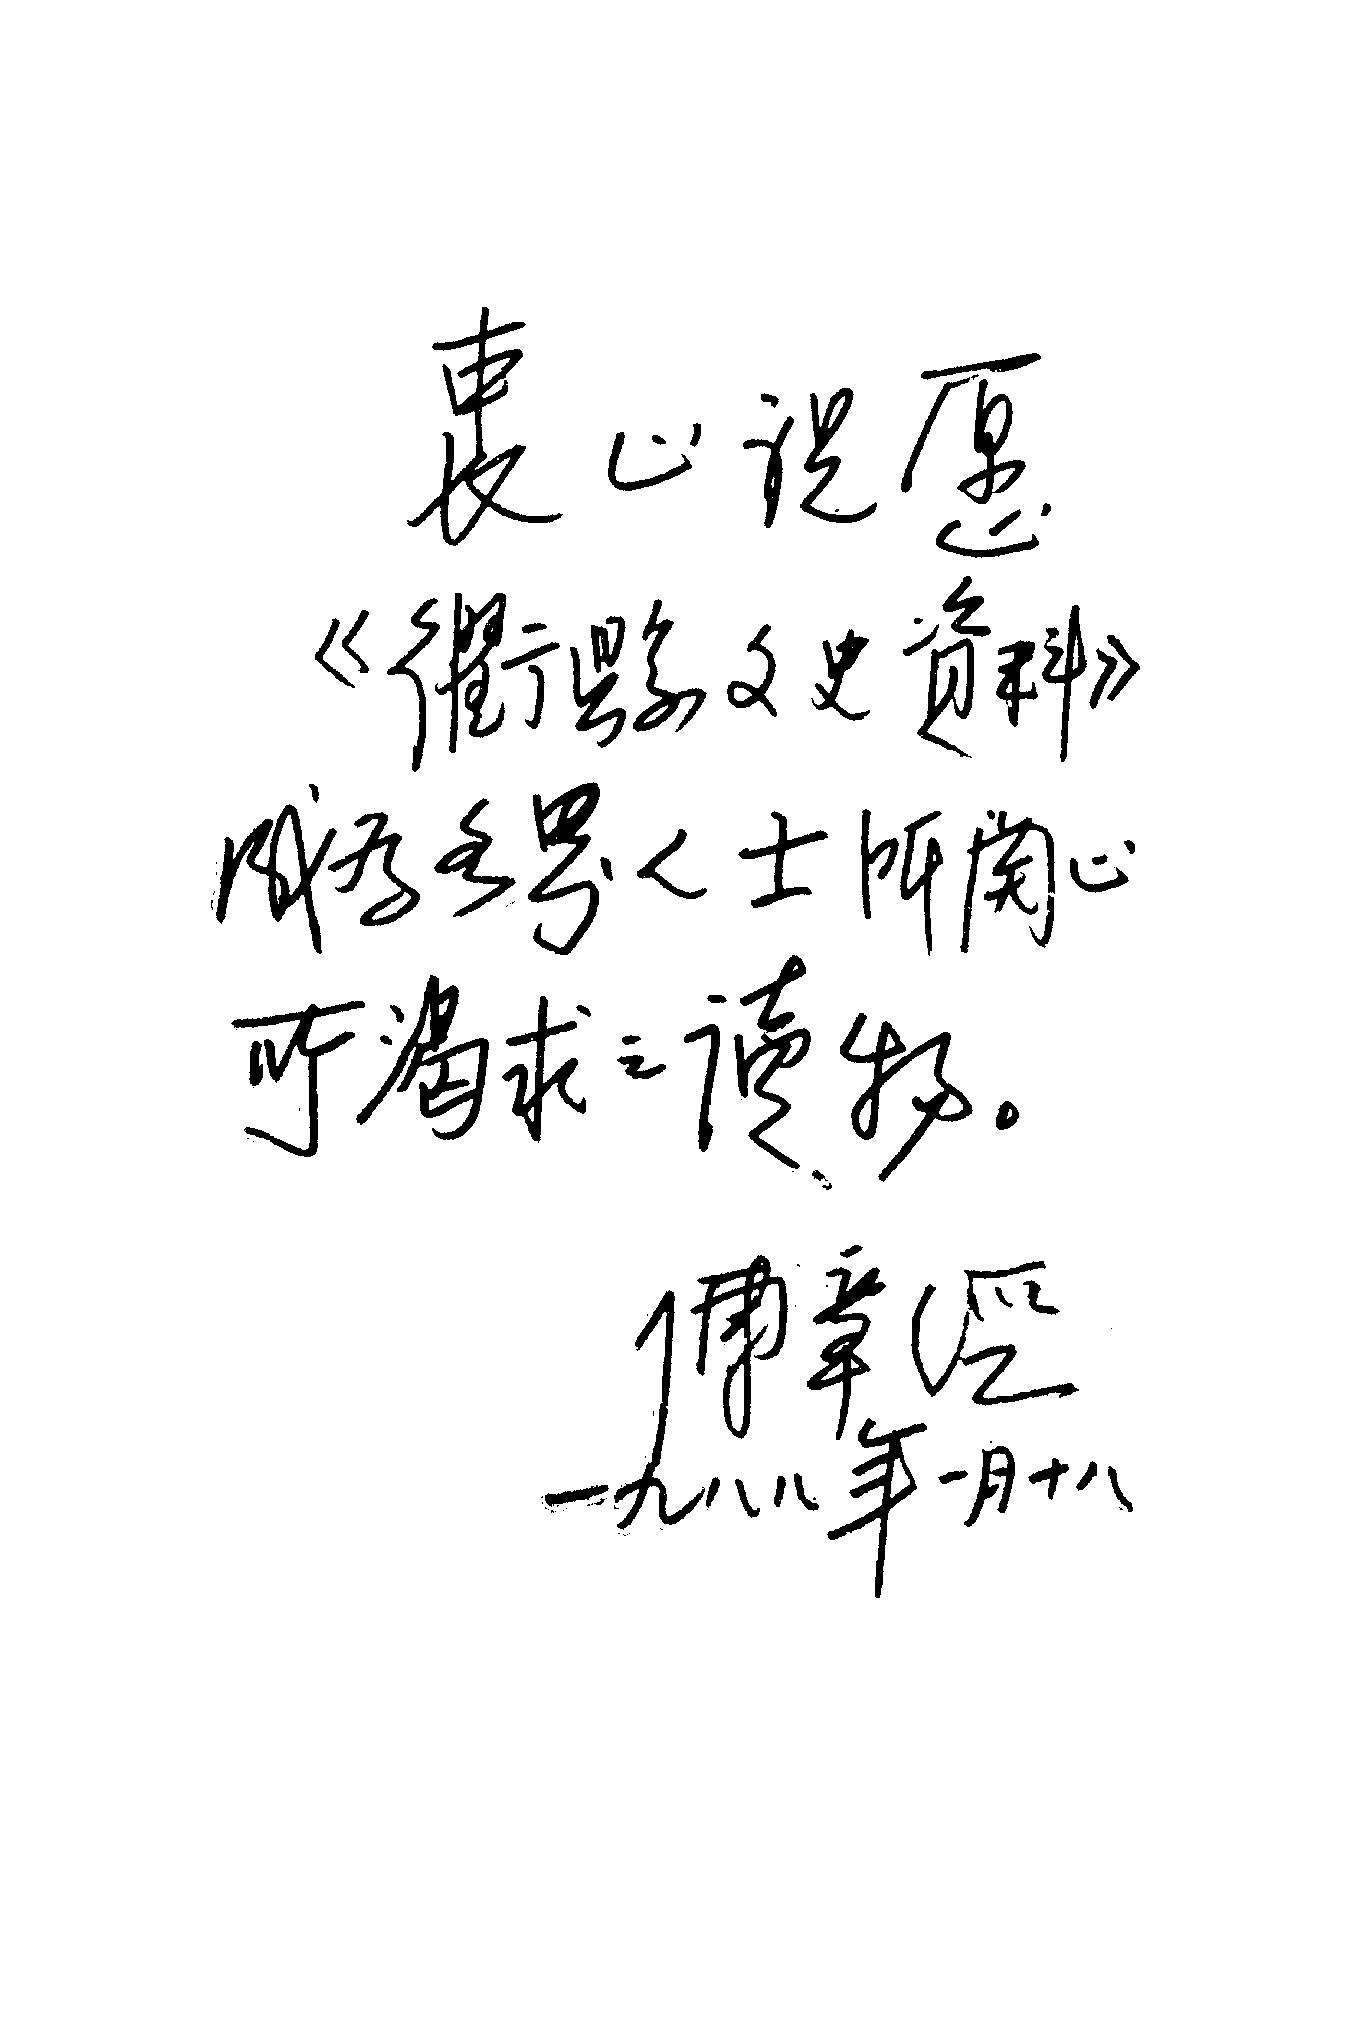 衷心祝愿
《衢縣文史资料》
成为各界人士所関心
所渴求之读物。
傅章经
一九八八年一月十八